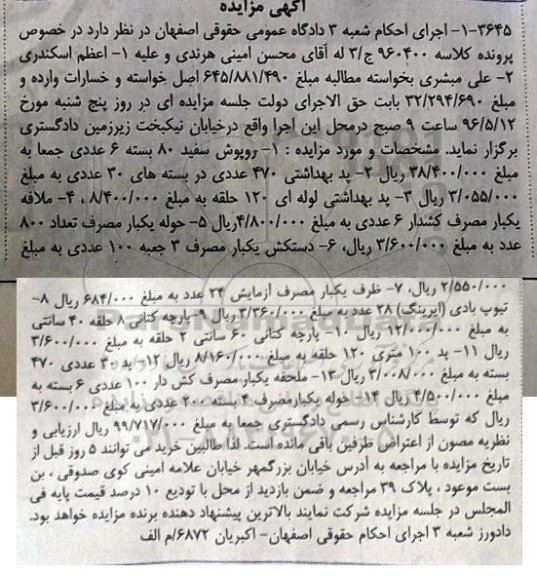 آگهی مزایده
۱-۳۶۴۵- اجرای احکام شعبه ۳ دادگاه عمومی حقوقی اصفهان در نظر دارد در خصوص
پرونده کلاسه ۹۶۰۴۰۰ ج/۳ له آقای محسن امینی هرندی و علیه ۱- اعظم اسکندری
۲- علی مبشری بخواسته مطالبه مبلغ ۶۴۵/۸۸۱/۴۹۰ اصل خواسته و خسارات وارده و
مبلغ ۳۲/۲۹۴/۶۹۰ بابت حق الاجرای دولت جلسه مزایده ای در روز پنج شنبه مورخ
۹۶/۵/۱۲ ساعت ۹ صبح درمحل این اجرا واقع درخیابان نیکبخت زیرزمین دادگستری
برگزار نماید. مشخصات و مورد مزایده : ۱- روپوش سفید ۸۰ بسته ۶ عددی جمعا به
مبلغ ۳۸/۴۰۰/۰۰۰ ریال ۲- پد بهداشتی ۴۷۰ عددی در بسته های ۳۰ عددی به مبلغ
۳/۰۵۵/۰۰۰ ریال ۳- پد بهداشتی لوله ای ۱۲۰ حلقه به مبلغ ۸/۴۰۰/۰۰۰ ، ۴- ملافه
یکبار مصرف کشدار ۶ عددی به مبلغ ۴/۸۰۰/۰۰۰ریال ۵- حوله یکبار مصرف تعداد ۸۰۰
عدد به مبلغ ۳/۶۰۰/۰۰۰ ریال، ۶- دستکش یکبار مصرف ۳ جعبه ۱۰۰ عددی به مبلغ
۲/۵۵۰/۰۰۰ ریال، ۷- ظرف یکبار مصرف آزمایش ۲۴ عدد به مبلغ ۶۸۴/۰۰۰ ریال ۸-
تیوپ بادی (ایرینگ) ۲۸ عدد به مبلغ ۳/۳۶۰/۰۰۰ ریال ۹-پارچه کتانی ۸ حلقه ۴۰ سانتی
به مبلغ ۱۲/۸۰۰/۰۰۰ ریال ۱۰- پارچه کتانی ۶۰ سانتی ۲ حلقه به مبلغ ۳/۶۰۰/۰۰۰
ریال ۱۱- پد ۱۰۰ متری ۱۲۰ حلقه به مبلغ ۸/۱۶۰/۰۰۰ ریال ۱۲- پد ۳۰ عددی ۴۷۰
بسته به مبلغ ۳/۰۰۸/۰۰۰ ریال ۱۳- ملحفه یکبار مصرف کش دار ۱۰۰ عددی ۶ بسته به
مبلغ ۴/۵۰۰/۰۰۰ ریال ۱۴- حوله یکبارمصرف ۴ بسته ۲۰۰ عددی به مبلغ ۳/۶۰۰/۰۰۰
ریال که توسط کارشناس رسمی دادگستری جمعا به مبلغ ۹۹/۷۱۷/۰۰۰ ریال ارزیابی و
نظریه مصون از اعتراض طرفین باقی مانده است. لذا طالبین خرید می توانند ۵ روز قبل از
تاریخ مزایده با مراجعه به آدرس خیابان بزرگمهر خیابان علامه امینی کوی صدوقی ، بن
بست موعود ، پلاک ۳۹ مراجعه و ضمن بازدید از محل با تودیع ۱۰ درصد قیمت پایه فی
المجلس در جلسه مزایده شرکت نمایند بالاترین پیشنهاد دهنده برنده مزایده خواهد بود.
دادورز شعبه ۳ اجرای احکام حقوقی اصفهان- اکبریان ۶۸۷۲/م الف